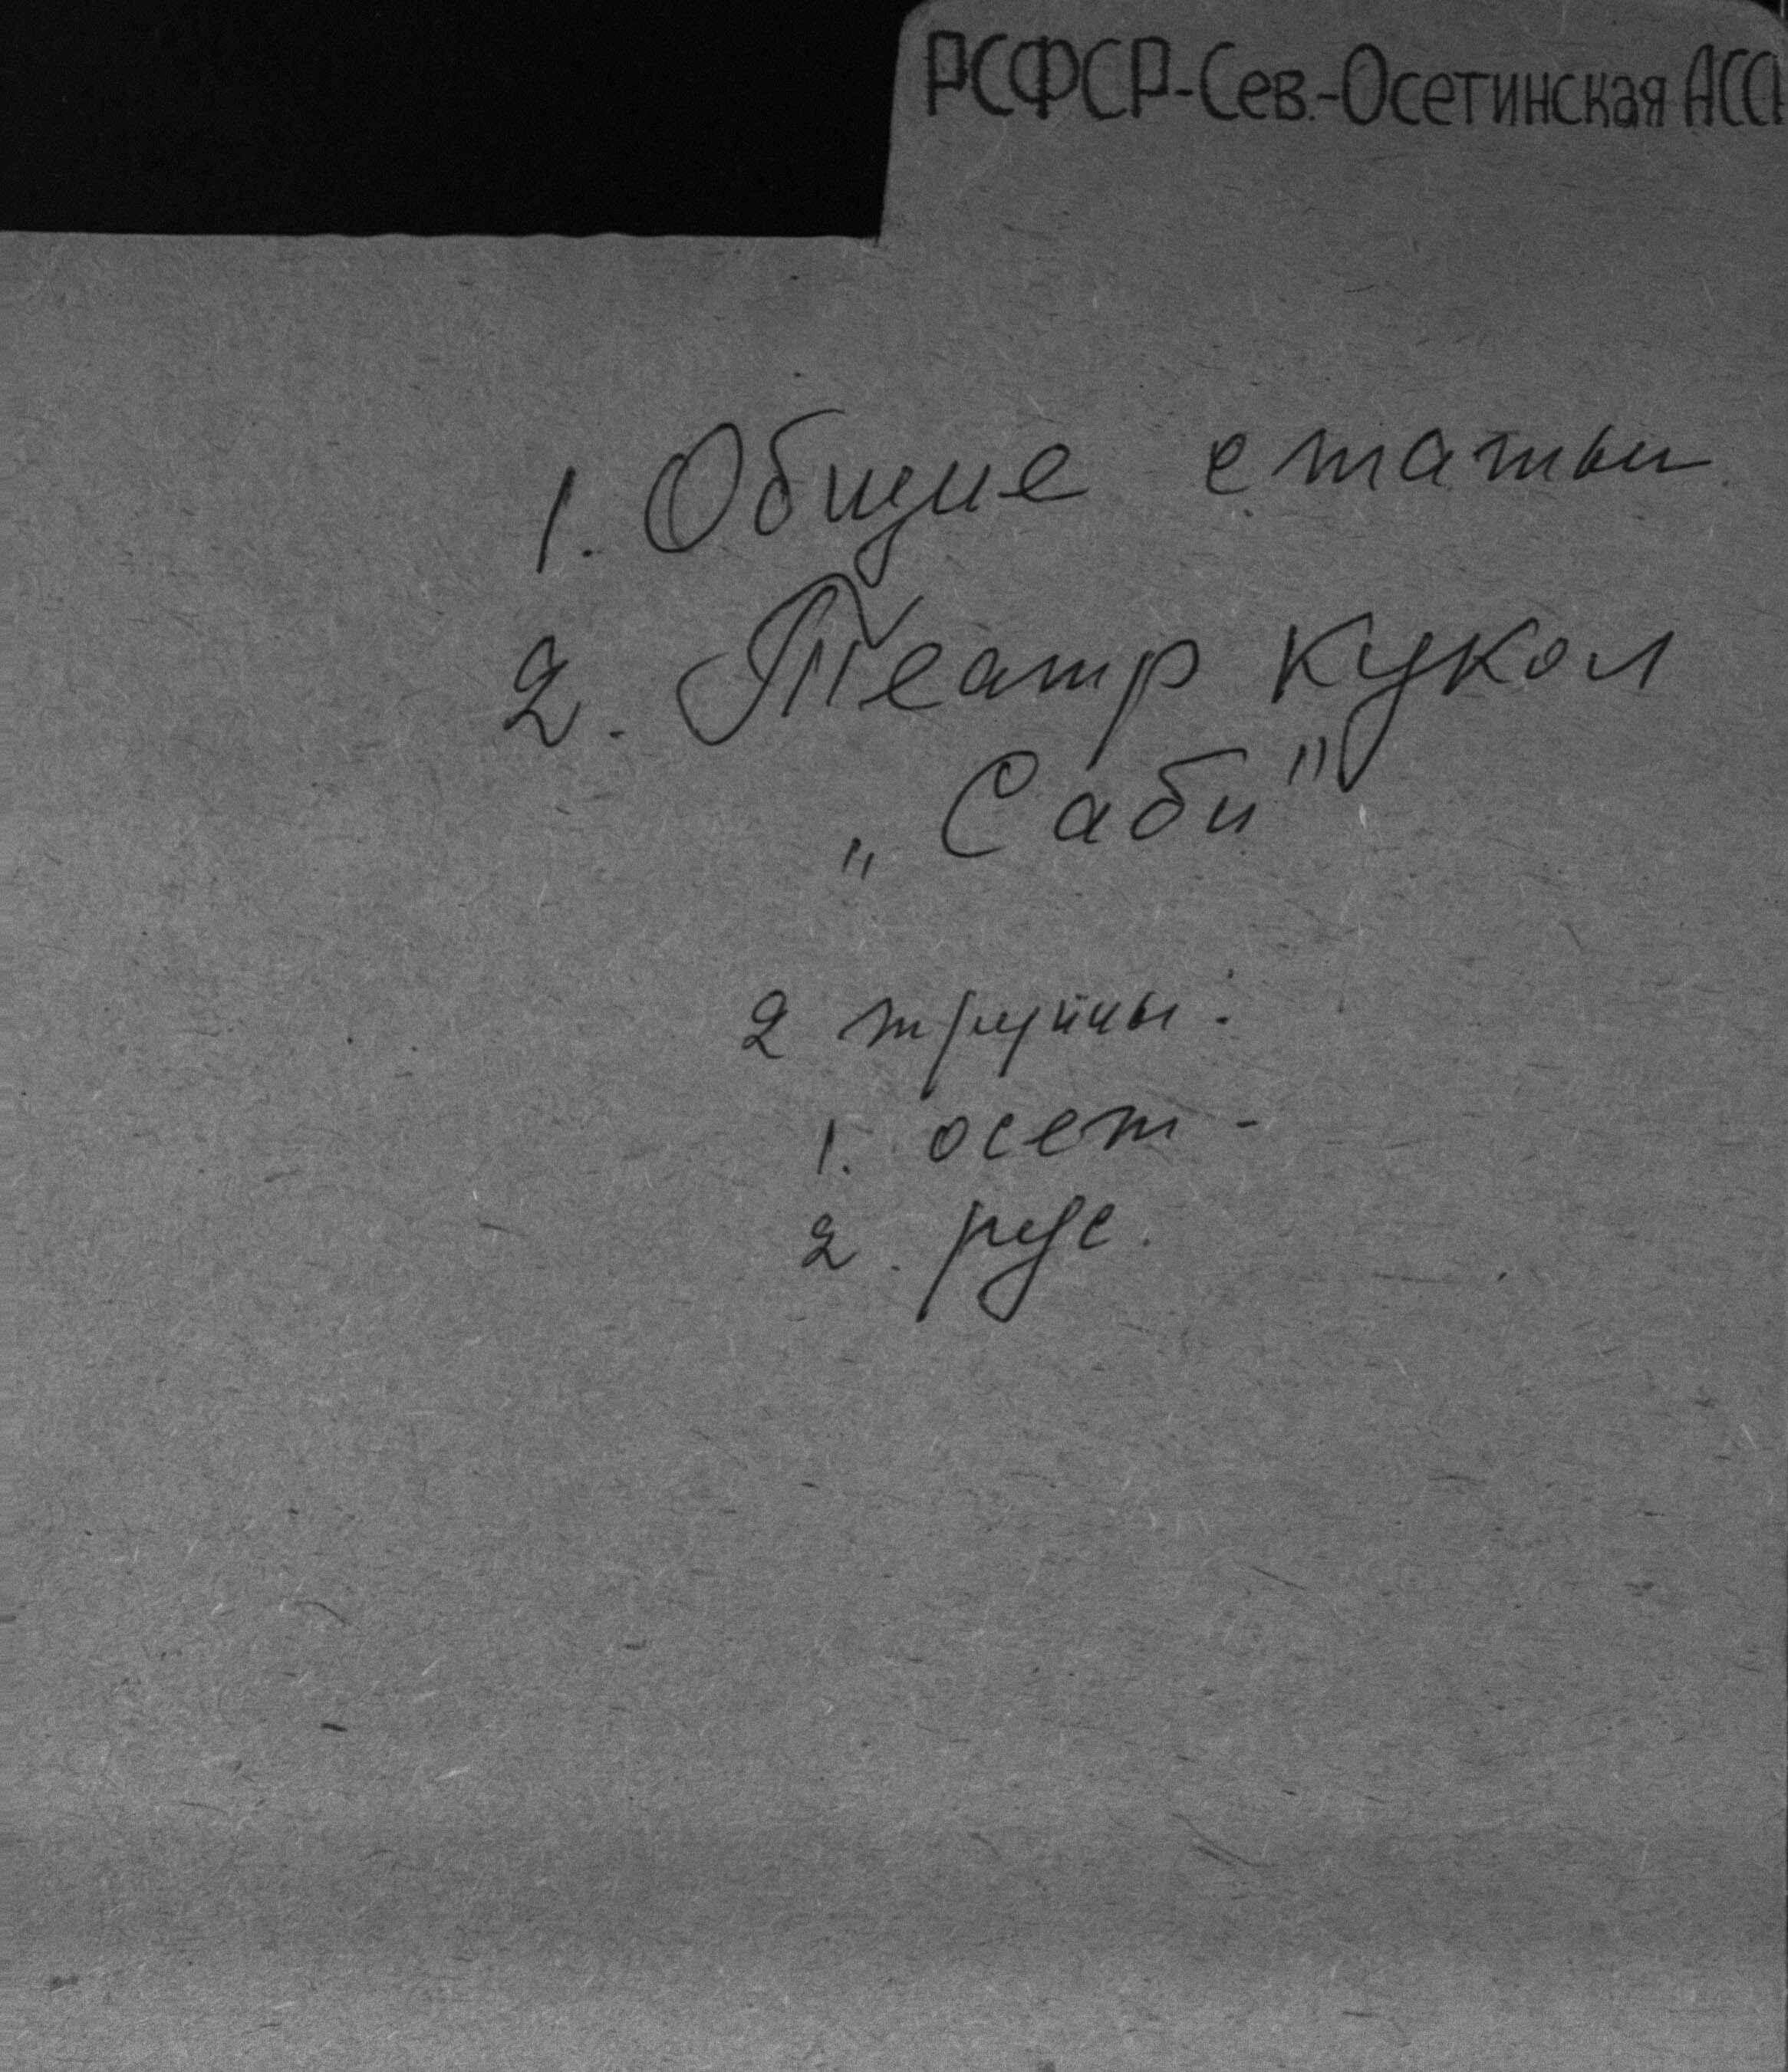 РСФСР-Сев.-Осетинская АССР
1. Общие статьи
2. Театр кукол
„Саби"
2 труппы:
1. осет-
2. рус.